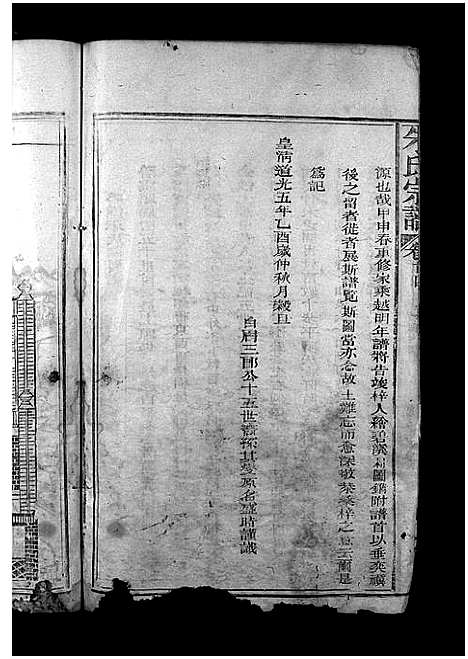 朱氏宗譜
源也哉甲申春重修家乘越明年譜將告竣梓人繪碧溪村圖鐫附譜首以垂奕禩
後之留者徙者展斯譜覽斯圖當亦念故土難忘而愈深敬恭桑梓之意云爾是
為記
皇清道光五年乙酉歲仲秋月穀旦
三郎公十五世裔孫其變原名盛時謹識